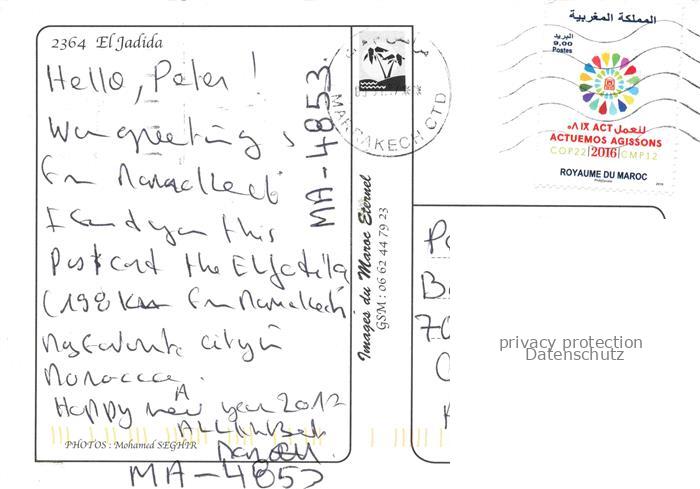 2364 El Jadida
Hello, Peter!
Warm greetings
from Marrakech
I send you this
Postcard the El Jadida
(198 Km from Marrakech
my favourite city in
Morocco.
Happy new year 2012
All the Best
PHOTOS : Mohamed SEGHIR
MA-4853
MA-4853.
Images du Maroc Eternel
GSM : 06 62 44 79 23
MARRAKECH CTD
المملكة المغربية
البريد
9,00
Postes
لنعمل ACT
ACTUEMOS AGISSONS
COP22 2016 CMP12
ROYAUME DU MAROC
2016
P
B
7
privacy protection
Datenschutz